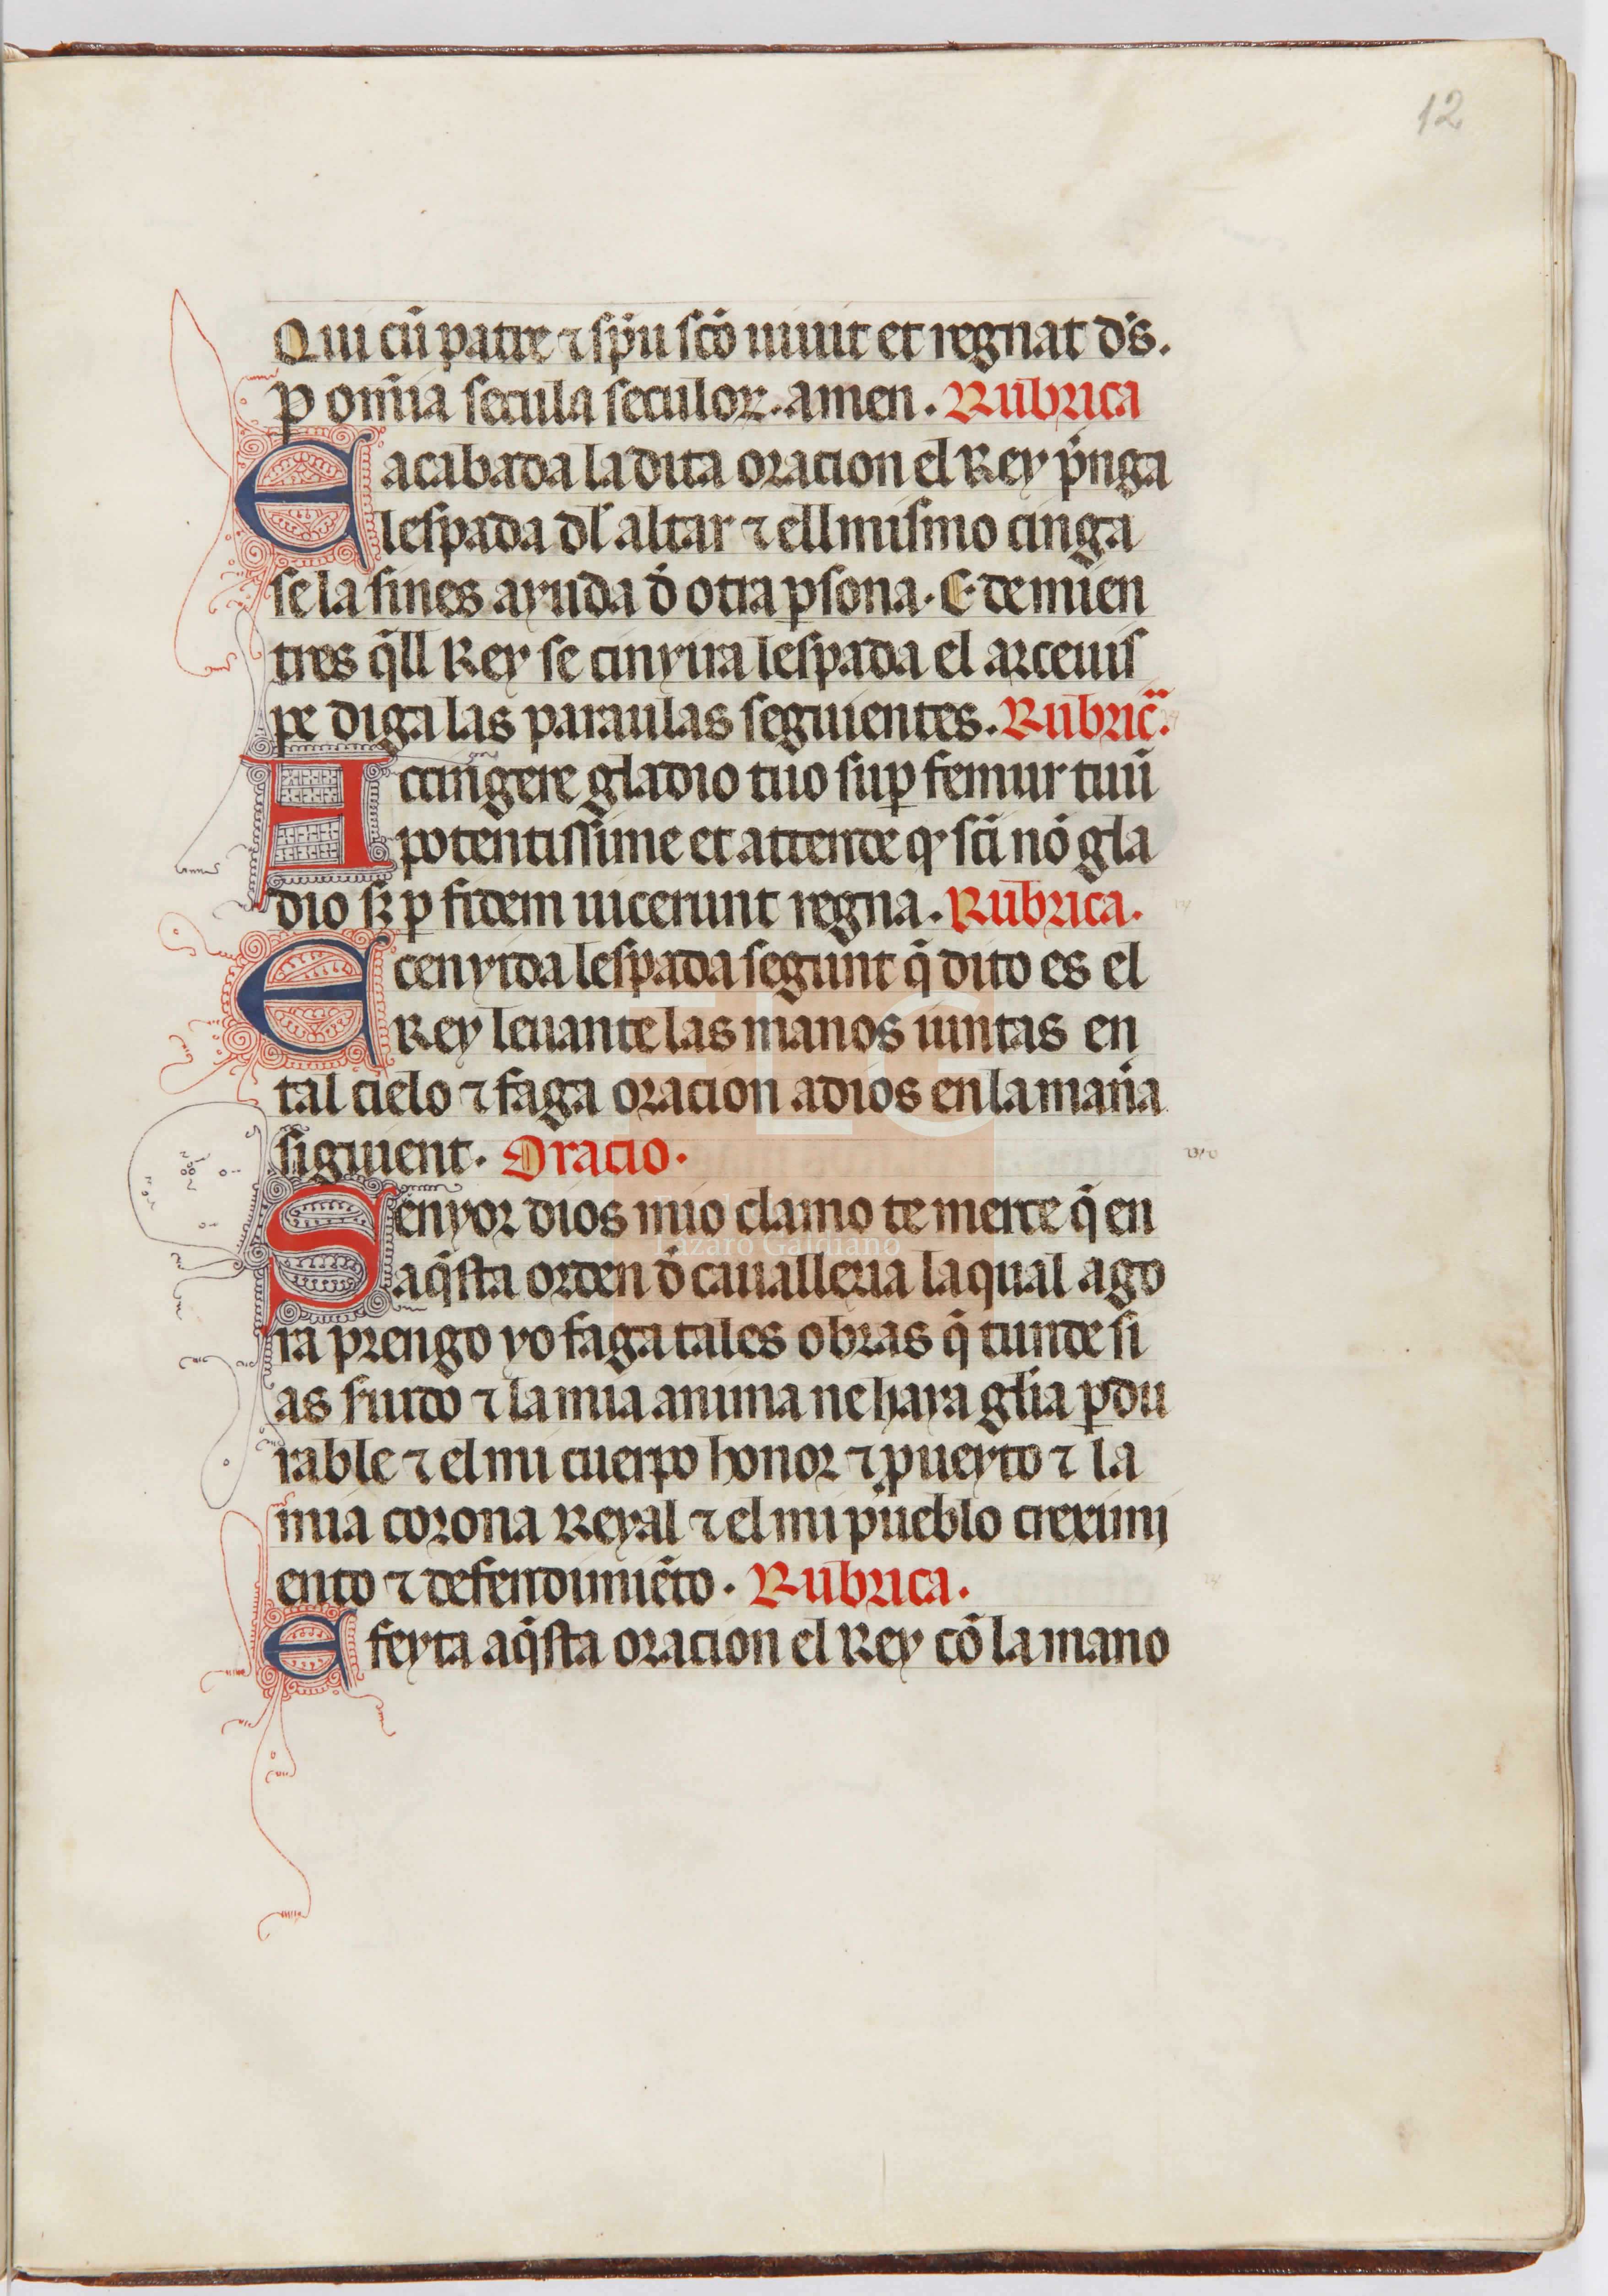 12
Qui cū patre ⁊ sp̄u sc̄o uiuit et regnat d's.
ꝑ om̄ia secula seculoꝝ. amen. Rubrica
E acabada la dita oracion el Rey p̄nga
lespada dl' altar ⁊ ell mismo cinga
se la sines ayuda d' otra ꝑsona. E demien
tres q̄ll Rey se cinyira lespada el arceuis
pe diga las paraulas seguientes. Rubric̄.
Accingere gladio tuo suꝑ femur tuū
potentissime et attende q' sc̄i nō gla
dio sꝫ ꝑ fidem uicerunt regna. Rubrica.
E cenyida lespada segunt q̄ dito es el
Rey leuante las manos iuntas en
tal cielo ⁊ faga oracion a dios en la man̄a
siguient. Oracio.
Senyor dios mio clamo te merce q̄ en
aq̄sta orden d' caualleria la qual ago
ra prengo yo faga tales obras q̄ tu inde si
as siruido ⁊ la mia anima ne haya gl'ia ꝑdu
rable ⁊ el mi cuerpo honor ⁊ ꝓueyto ⁊ la
mia corona Reyal ⁊ el mi pueblo creximi
ento ⁊ defendimiēto. Rubrica.
E feyta aq̄sta oracion el Rey cō la mano
Lázaro Galdiano